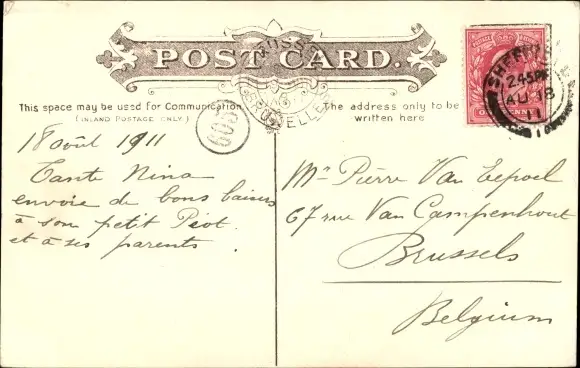 POST CARD.
This space may be used for Communication
(INLAND POSTAGE ONLY.)
The address only to be
written here
18 août 1911
Tante Nina
envoie de bons baisers
à son petit Piot
et à ses parents.
Mr Pierre Van Eepoel
67 rue Van Campenhout
Brussels
Belgium
2.45 PM
AU 18
11